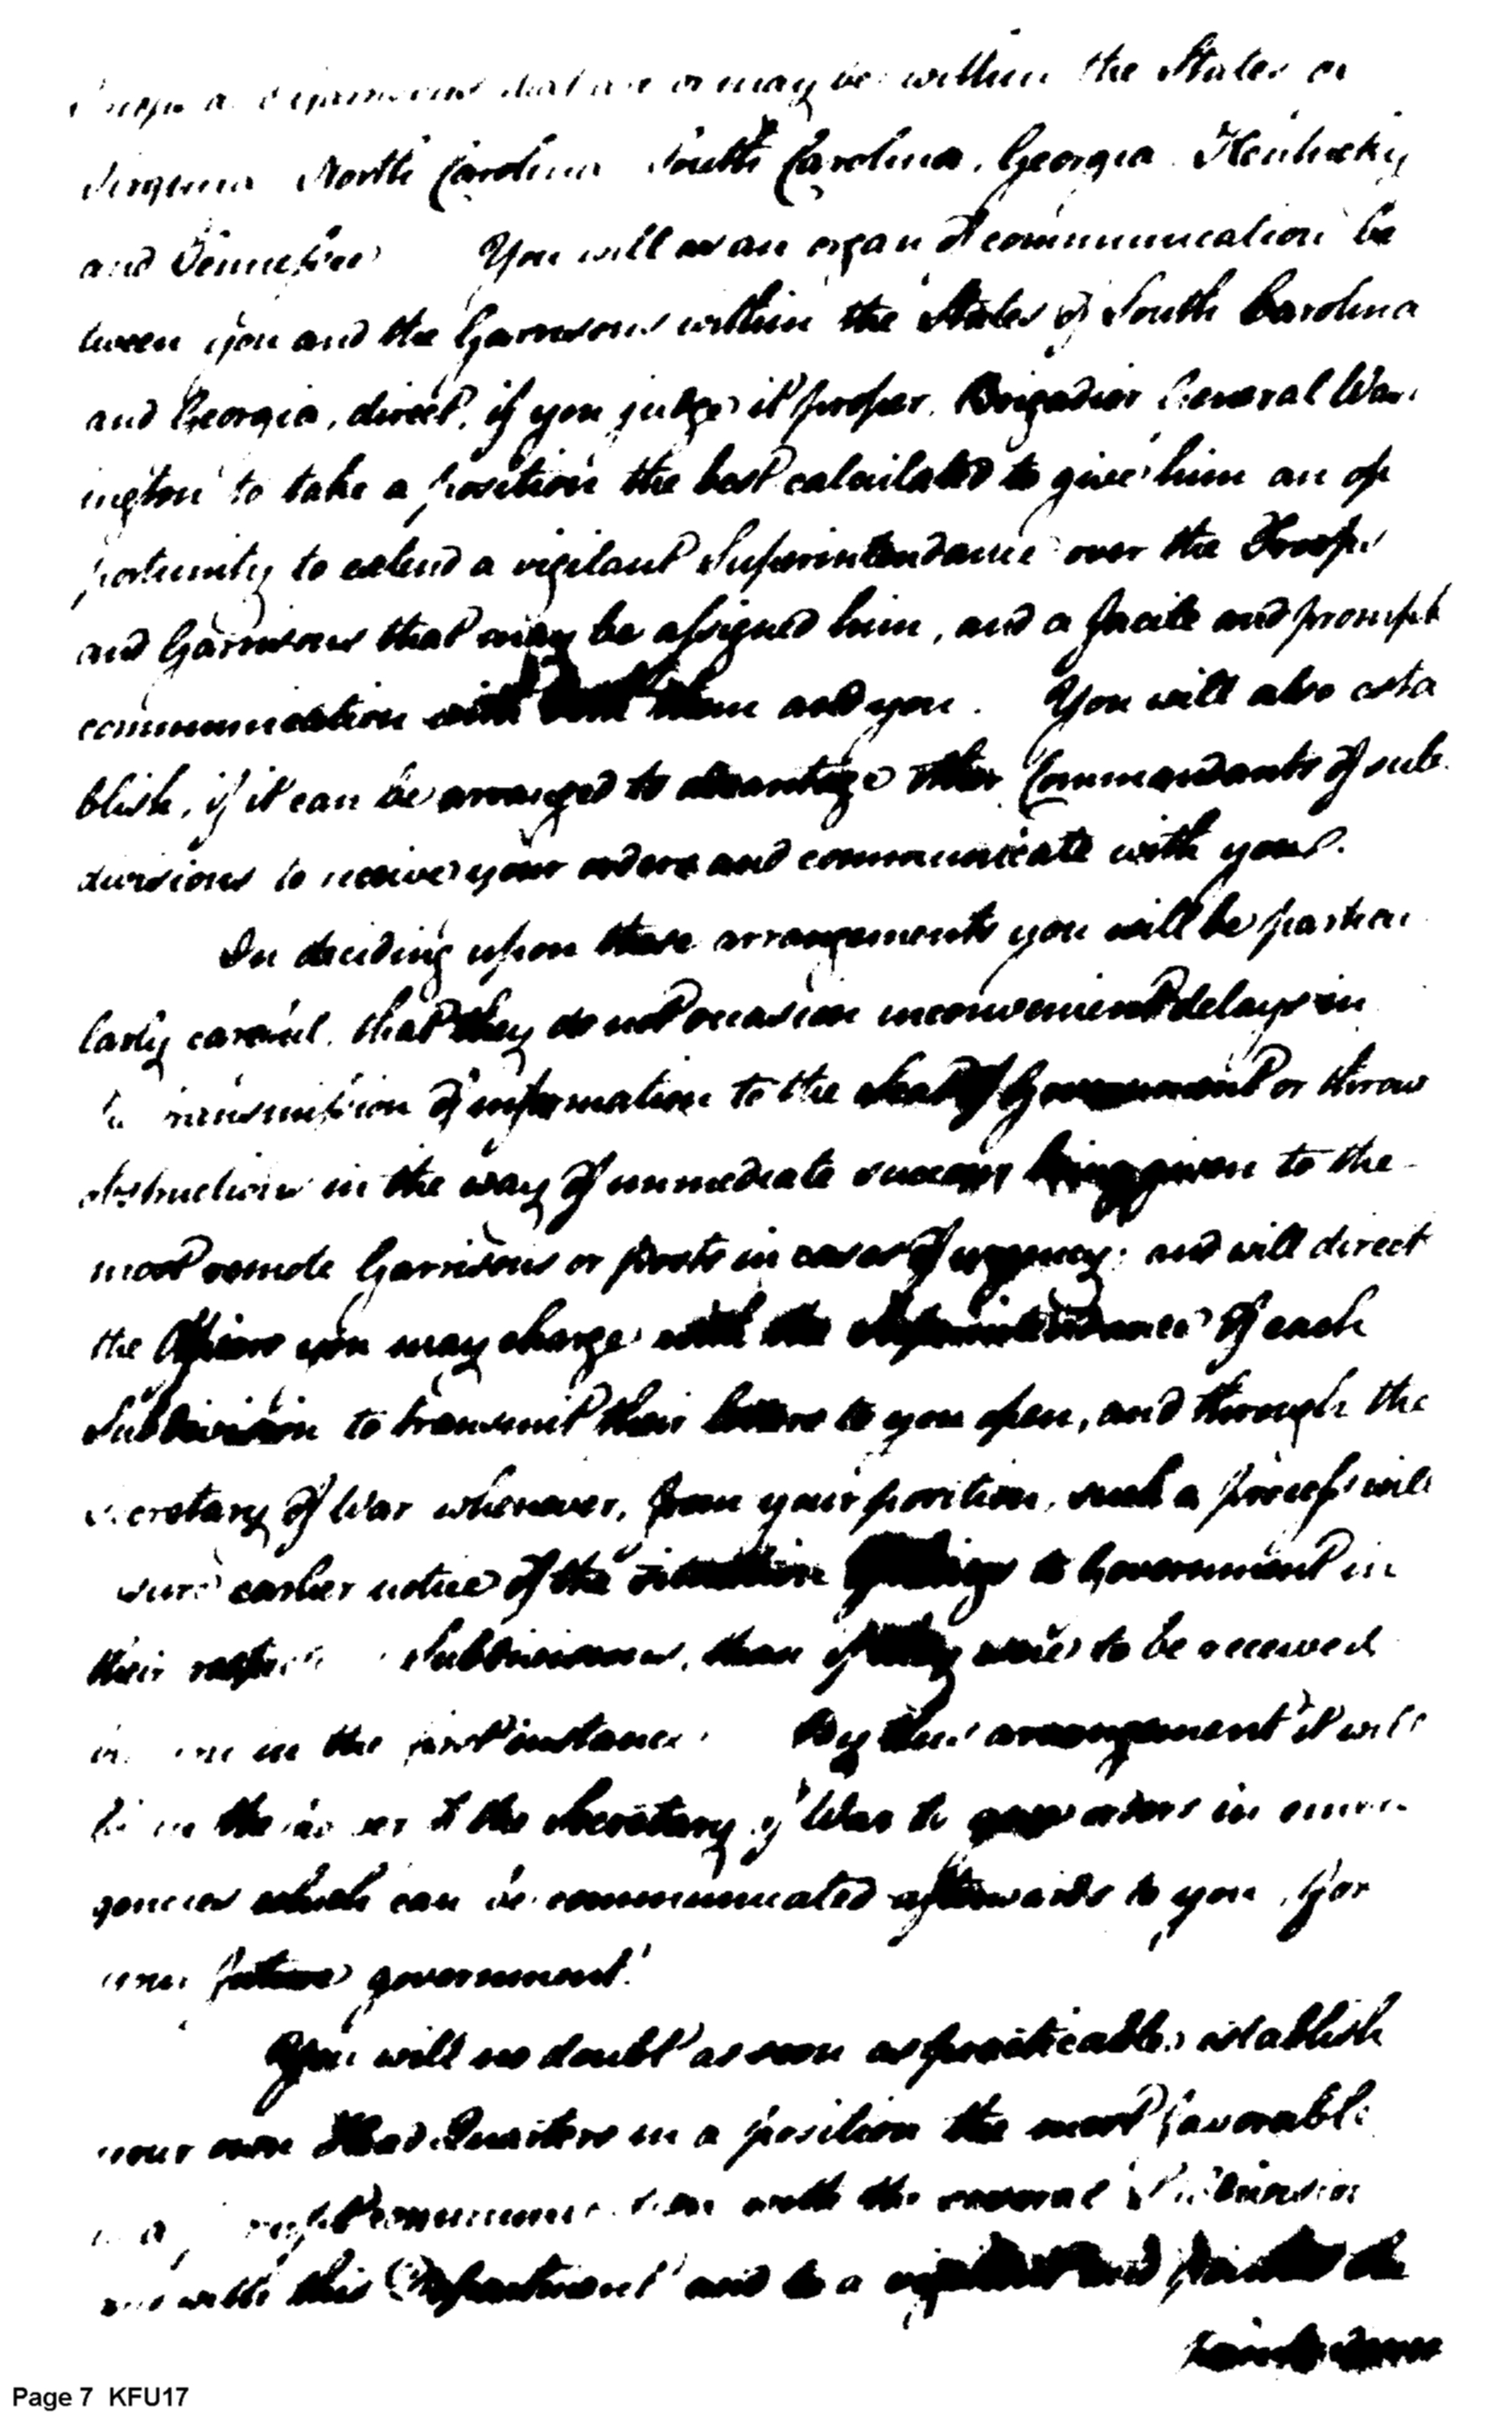 that are or may be within the States of
Virginia North Carolina South Carolina, Georgia Kentucky
and Tennessee You will as an organ of communication be
tween you and the Garrisons within the States of South Carolina
and Georgia, direct, if you judge it proper, Brigadier General Wash
ington to take a position the best calculated to give him an op
portunity to extend a vigilant Superintendance over the Troops
and Garrisons that may be assigned him, and a facile and prompt
communication with both them and you. You will also esta
blish, if it can be arranged to advantage other Commandants of sub
divisions to receive your orders and communicate with you.
In deciding upon these arrangements you will be particu
larly careful, that they do not occasion inconvenient delays in
transmission of information to the Seat of Government or throw
obstructions in the way of immediate succour being given to the
most remote Garrisons or posts in cases of urgency; and will direct
the Officers you may charge with the Superintendance of each
Subdivision to transmit their letters to you open, and through the
Secretary of War whenever, from your position, such a process will
earlier notice of the situation to Government in
their Subdivisions, than if they were to be received
in the first instance. By this arrangement it will
be in the power of the Secretary of War to give orders in emer
gencies which can be communicated afterwards to you, for
your future government.
You will no doubt as soon as practicable establish
your own Head Quarters in a position the most favorable
communication with the several Subdivisions
and with this Department and to a vigilant and